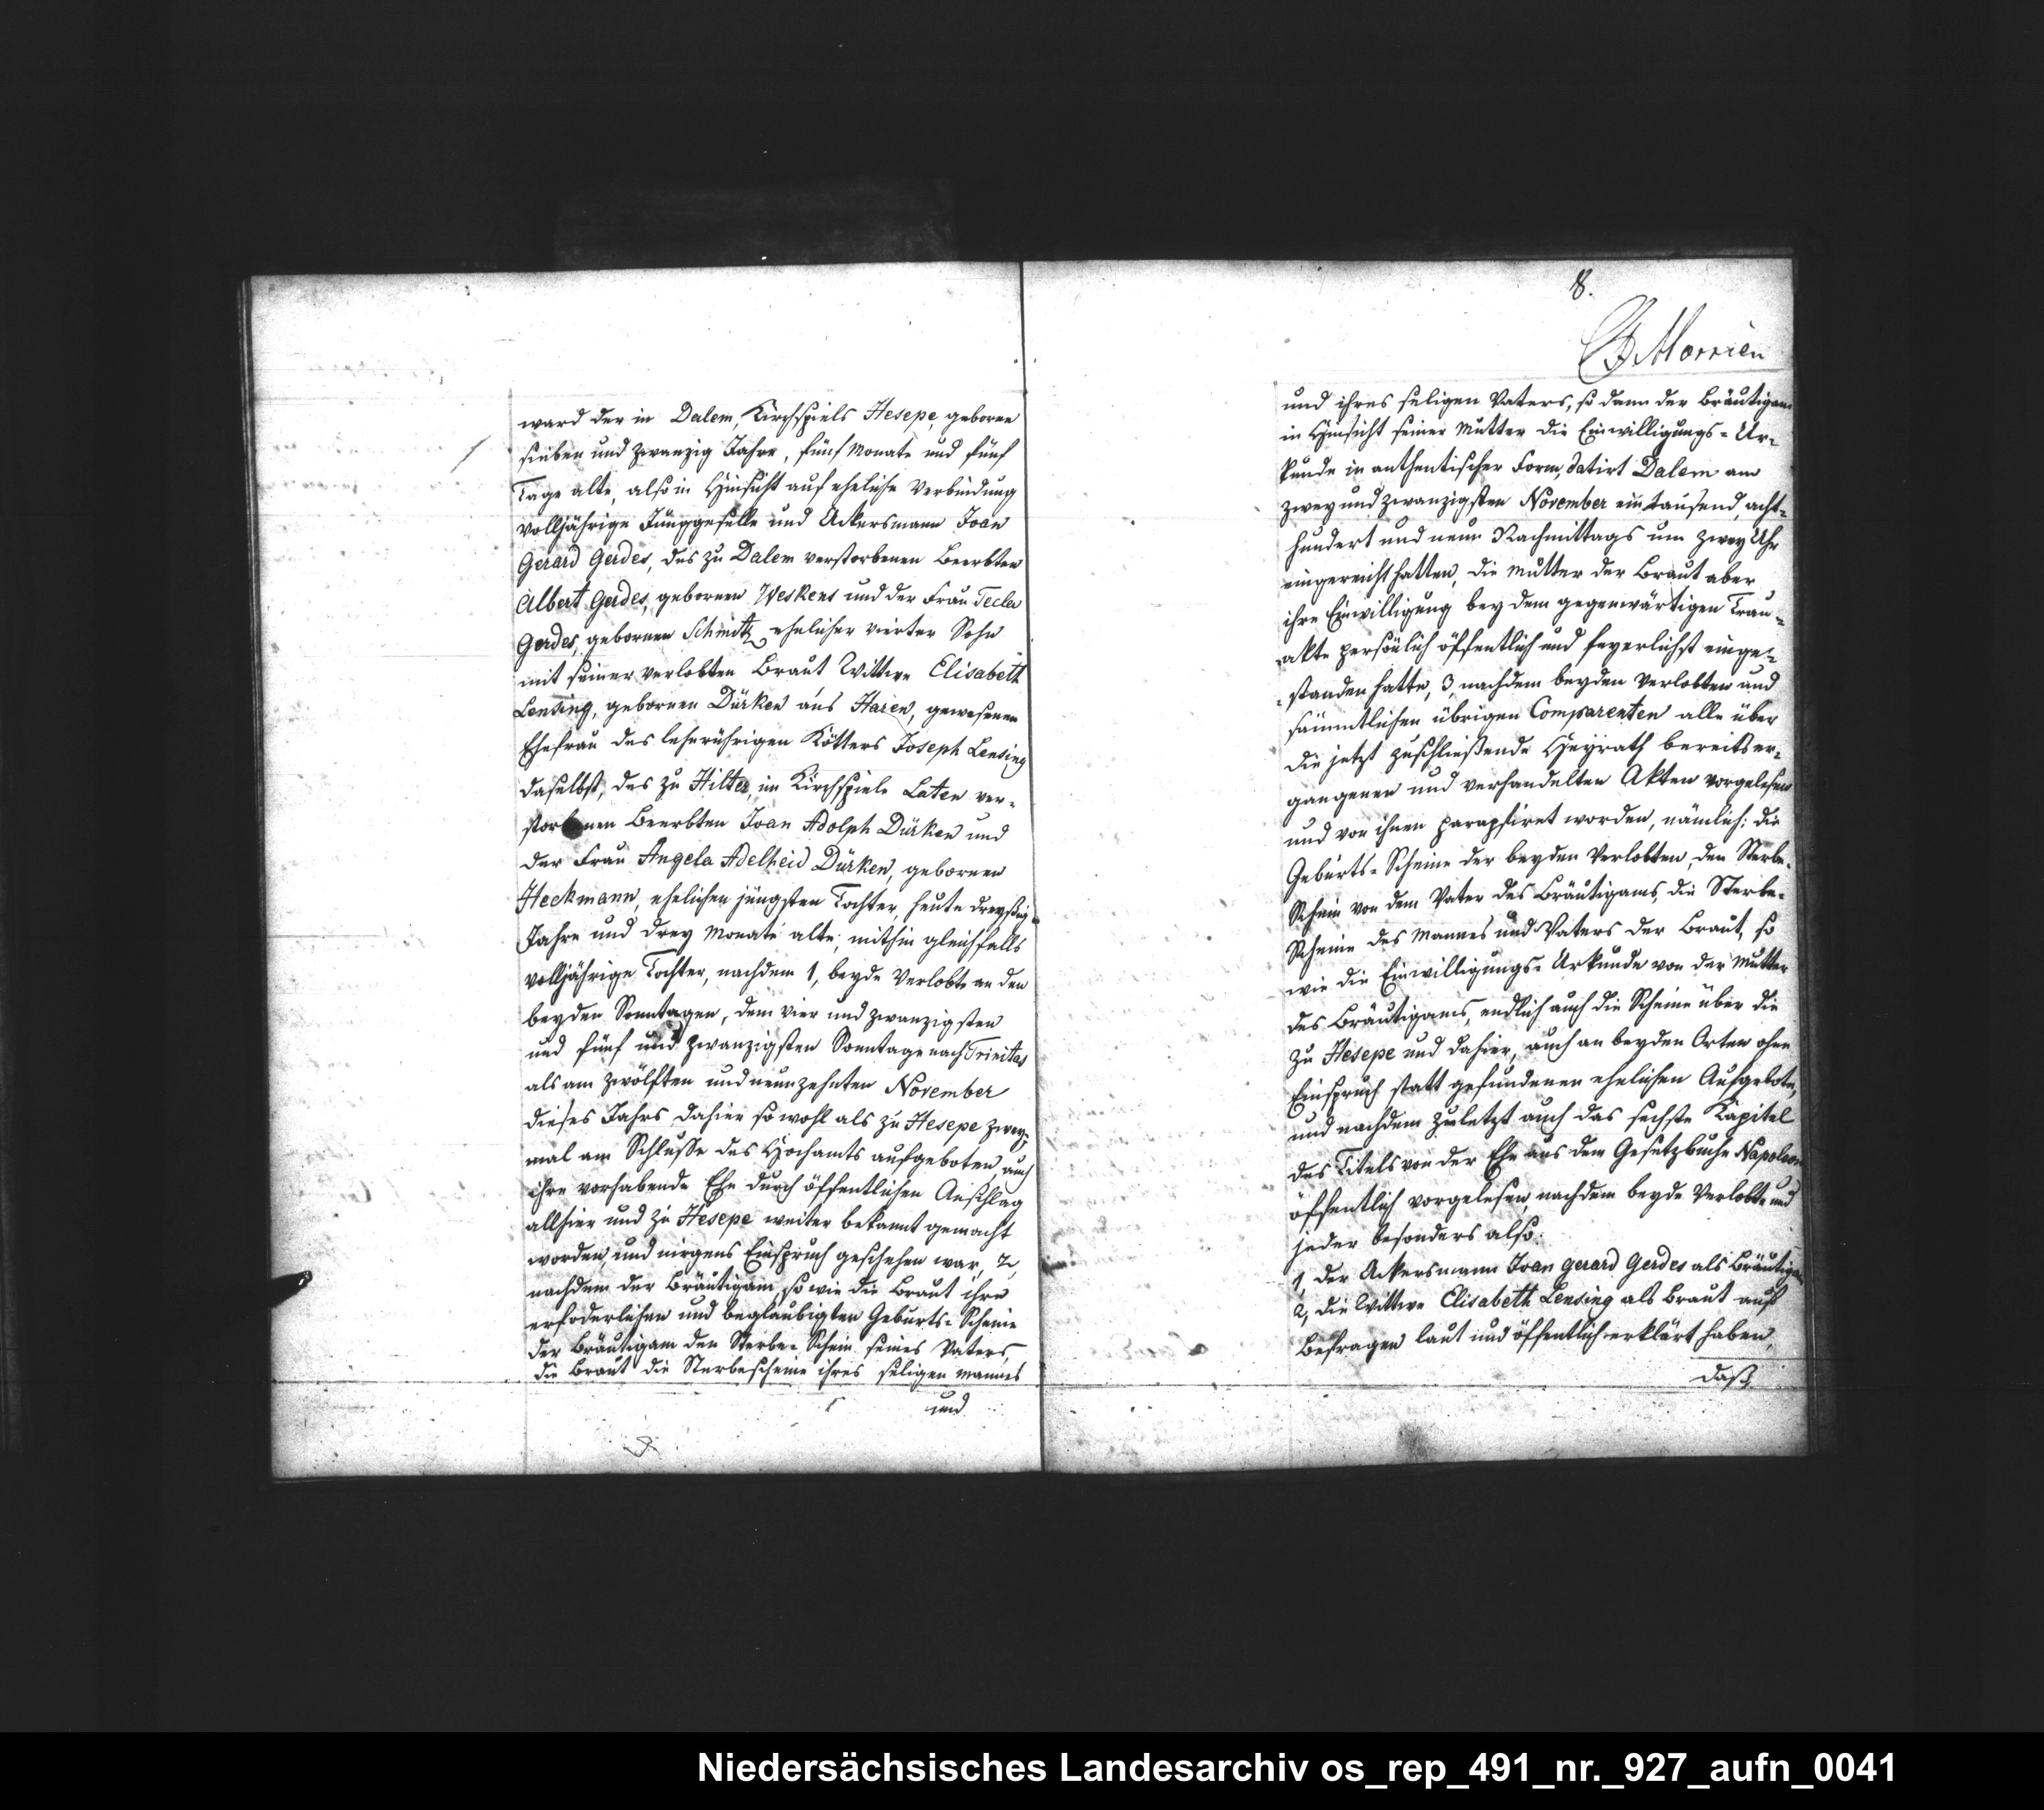 ward der in Dalem, Kirchspiels Hesepe, geborne
sieben und zwanzig Jahre, fünf Monate und fünf
Tage alte, also in Hinsicht auf eheliche Verbindung
volljährige Junggeselle und Ackersmann Joan
Gerard Gerdes, des zu Dalem verstorbenen Beerbten
Albert Gerdes, gebornen Weskens und der Frau Tecla
Gerdes, gebornen Schmitz ehelicher vierter Sohn
mit seiner verlobten Braut Wittwe Elisabeth
Lensing, gebornen Dürken aus Haren, gewesenen
Ehefrau des leherührigen Kötters Joseph Lensing
daselbst, des zu Hilter, im Kirchspiele Laten ver-
storbenen Beerbten Joan Adolph Dürken und
der Frau Angela Adelheid Dürken, gebornen
Heckmann, ehelichen jüngsten Tochter, heute dreyßig
Jahre und drey Monate alte, mithin gleichfalls
volljährige Tochter, nachdem 1, beyde Verlobte an den
beyden Sonntagen, dem vier und zwanzigsten
und fünf und zwanzigsten Sonntage nach Trinitas
als am zwölften und neunzehnten November
dieses Jahrs dahier so wohl als zu Hesepe zwey-
mal am Schlusse des Hochamts aufgeboten auch
ihre vorhabende Ehe durch öffentlichen Anschlag
allhier und zu Hesepe weiter bekannt gemacht
worden, und nirgens Einspruch geschehen war, 2,
nachdem der Bräutigam, so wie die Braut ihre
erfoderlichen und beglaubigten Geburts-Scheine
der Bräutigam den Sterbe-Schein seines Vaters,
die Braut die Sterbescheine ihres seligen Mannes
und
8.
Morrien
und ihres seligen Vaters, so dann der Bräutigam
in Hinsicht seiner Mutter die Einwilligungs-Ur-
kunde in authentischer Form, datirt Dalem am
zwey und zwanzigsten November ein tausend, acht-
hundert und neun Nachmittags um zwey Uhr
eingereicht hatten, die Mutter der Braut aber
ihre Einwilligung bey dem gegenwärtigen Trau-
akte persönlich öffentlich und feyerlichst einge-
standen hatte, 3, nachdem beyden Verlobten und
sämmtlichen übrigen Comparenten alle über
die jetzt zuschließende Heyrath bereits er-
gangenen und verhandelten Akten vorgelesen
und von ihnen paraphiret worden, nämlich: die
Geburts-Scheine der beyden Verlobten, den Sterbe-
Schein von dem Vater des Bräutigams, die Sterbe-
Scheine des Mannes und Vaters der Braut, so
wie die Einwilligungs-Urkunde von der Mutter
des Bräutigams, endlich auch die Scheine über die
zu Hesepe und dahier, auch an beyden Orten ohne
Einspruch statt gefundenen ehelichen Aufgebote,
und nachdem zuletzt auch das sechste Kapitel
des Titels von der Ehe aus dem Gesetzbuche Napoleon
öffentlich vorgelesen, nachdem beyde Verlobte und
jeder besonders also:
1, der Ackersmann Joan Gerard Gerdes als Bräutigam
2, die Wittwe Elisabeth Lensing als Braut aufs
Befragen laut und öffentlich erklärt haben,
daß
Niedersächsisches Landesarchiv os_rep_491_nr._927_aufn_0041